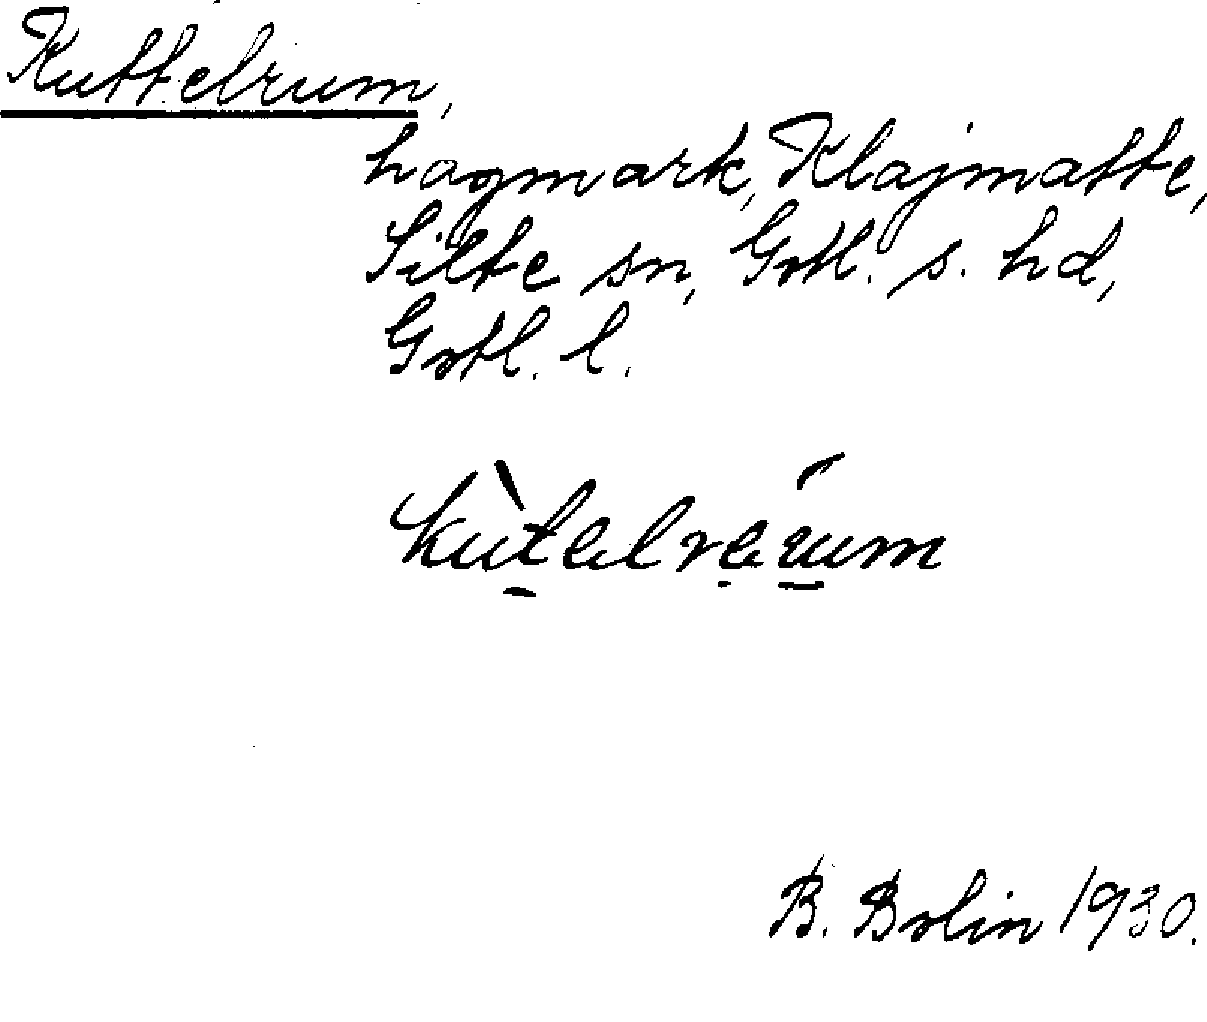 Kuttelrum,
hagmark, Klajmatte,
Silte sn, Gotl. s. hd,
Gotl. l.
kùtelreúum
B. Bolin 1930.